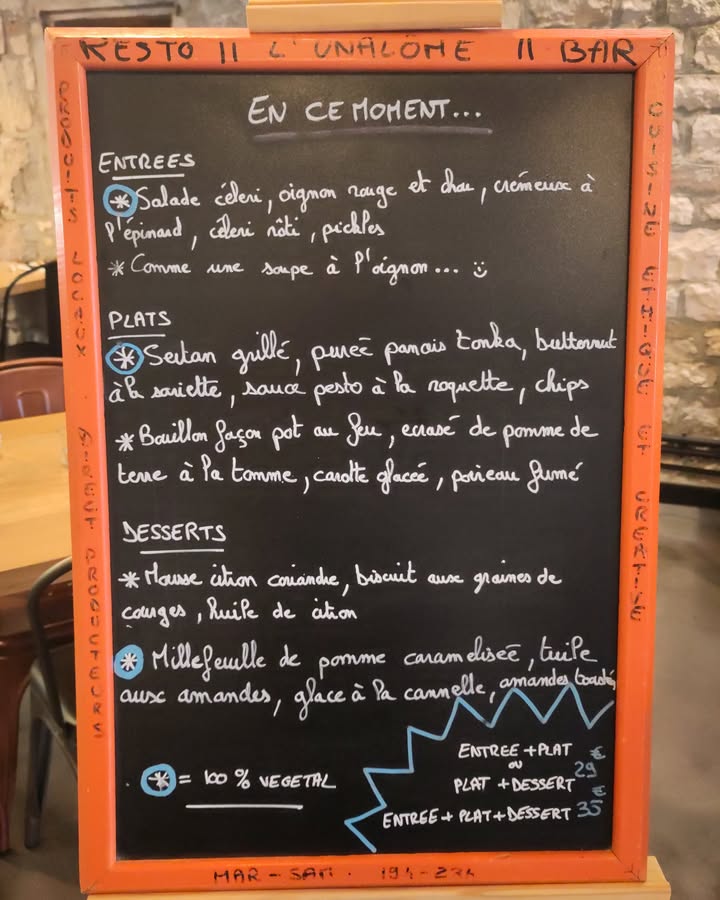 RESTO || L'UNALÔME || BAR
EN CE MOMENT...
ENTREES
* Salade céleri, oignon rouge et chou, crémeux à
l'épinard, céleri rôti, pickles
* Comme une soupe à l'oignon... :)
PLATS
* Seitan grillé, purée panais tonka, butternut
à la sariette, sauce pesto à la roquette, chips
* Bouillon façon pot au feu, ecrasé de pomme de
terre à la tomme, carotte glacée, poireau fumé
DESSERTS
* Mousse citron coriandre, biscuit aux graines de
courges, huile de citron
* Millefeuille de pomme caramelisée, tuile
aux amandes, glace à la cannelle, amandes toastés
* = 100 % VEGETAL
ENTREE + PLAT
OU
PLAT + DESSERT
29 €
ENTREE + PLAT + DESSERT 35 €
MAR - SAM · 19h - 23h
PRODUITS LOCAUX · DIRECT PRODUCTEURS
CUISINE ETHIQUE ET CREATIVE